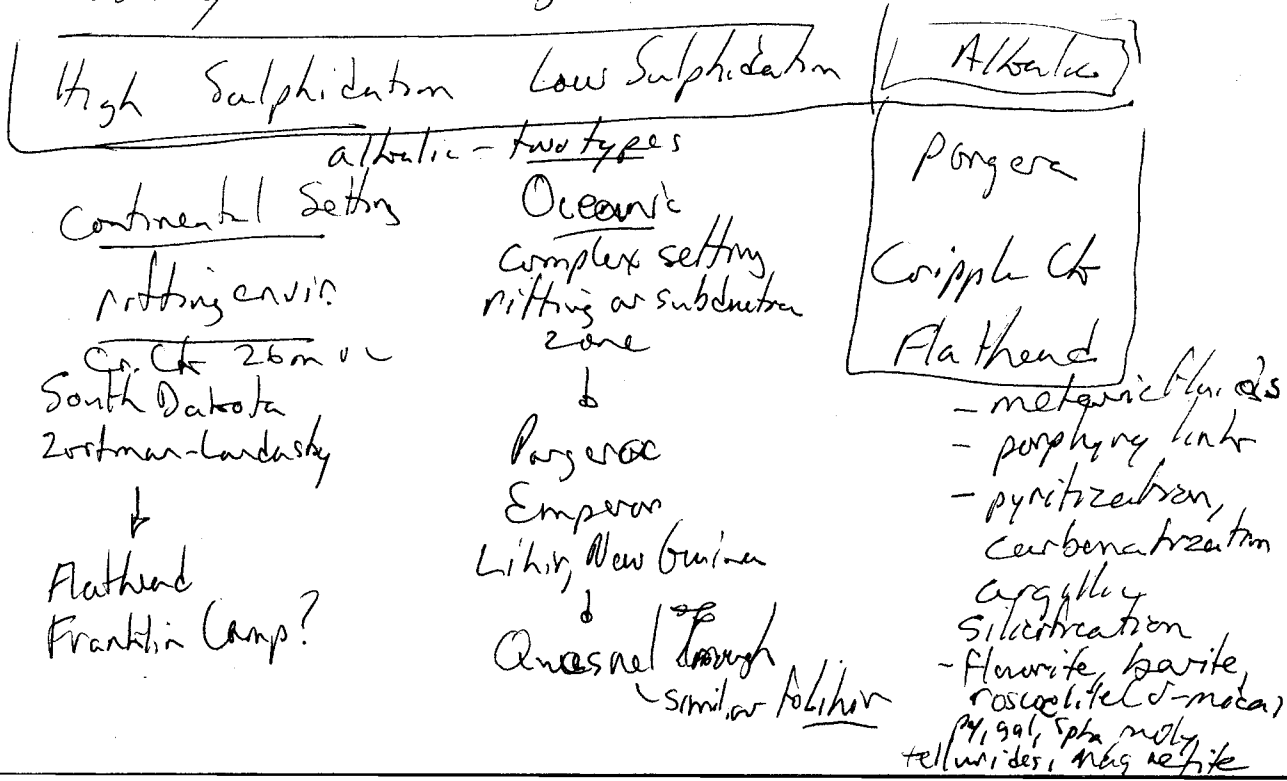 High Sulphidation Low Sulphidation Alkalic
alkalic - two types
Continental Setting
rifting envir.
Cr. Ck 26m
South Dakota
Zortman-Landusky
Flathead
Franklin Camp?
Oceanic
complex setting
rifting or subduction
zone
Porgera
Emperor
Lihir, New Guinea
Quesnel Trough
- similar to Lihir
Porgera
Cripple Ck
Flathead
- meteoric fluids
- porphyry link
- pyritization,
carbonatization
argillic
silicification
- fluorite, barite,
roscoelite (V-mica)
py, gal, spha, moly,
tellurides, magnetite